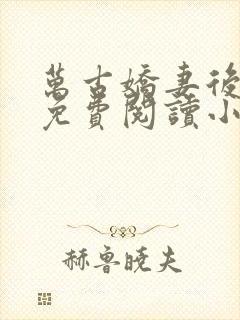 萬古嬌妻後
免費閱讀小
赫魯曉夫